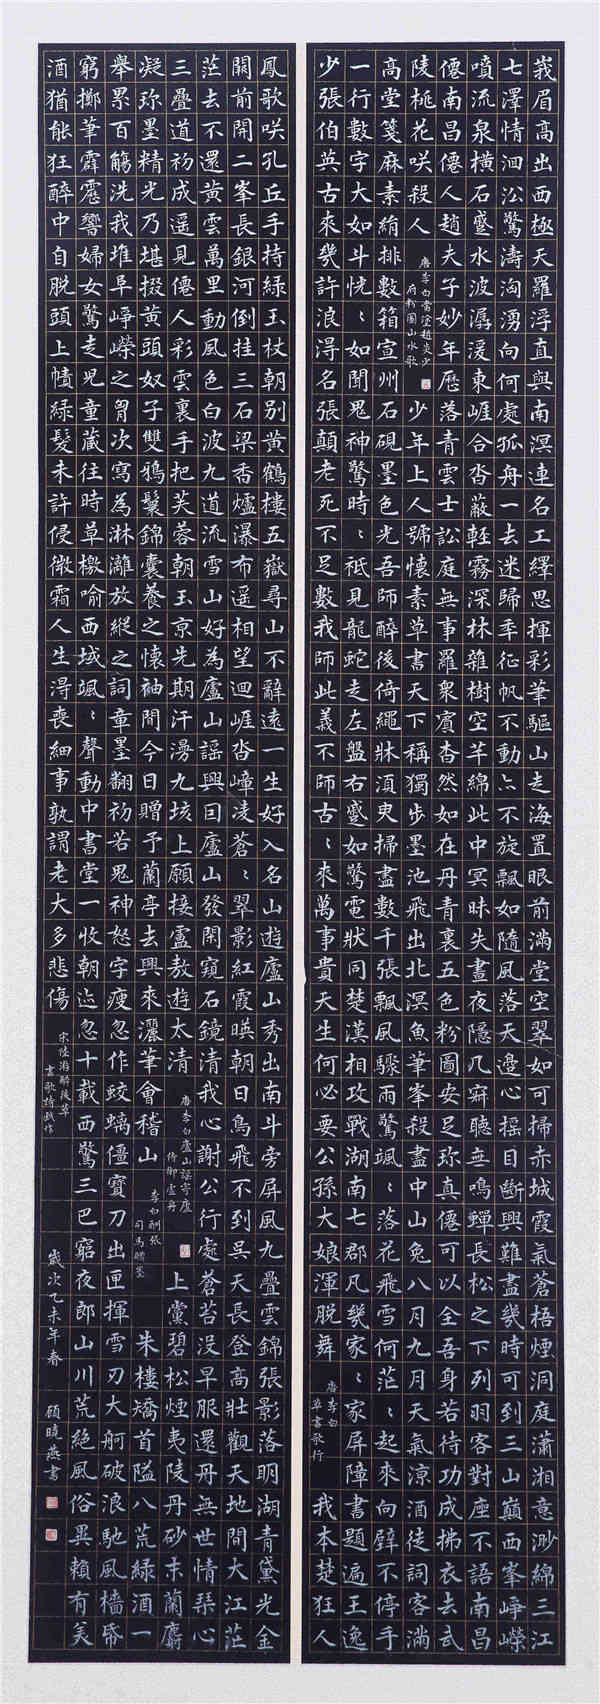 峩眉高出西極天羅浮直與南溟連名工繹思揮彩筆驅山走海置眼前滿堂空翠如可掃赤城霞氣蒼梧煙洞庭瀟湘意渺綿三江
七澤情洄沿驚濤洶湧向何處孤舟一去迷歸年征帆不動亦不旋飄如隨風落天邊心搖目斷興難盡幾時可到三山巔西峯崢嶸
噴流泉橫石蹙水波潺湲東崖合沓蔽輕霧深林雜樹空芊綿此中冥昧失晝夜隱几寂聽無鳴蟬長松之下列羽客對座不語南昌
僊南昌僊人趙夫子妙年歷落青雲士訟庭無事羅衆賓杳然如在丹青裏五色粉圖安足珎真僊可以全吾身若待功成拂衣去武
陵桃花咲殺人
唐李白當塗趙炎少
府粉圖山水歌
少年上人號懷素草書天下稱獨步墨池飛出北溟魚筆峯殺盡中山兔八月九月天氣涼酒徒詞客滿
高堂箋麻素絹排數箱宣州石硯墨色光吾師醉後倚繩牀須臾掃盡數千張飄風驟雨驚颯〻落花飛雪何茫〻起來向壁不停手
一行數字大如斗恍〻如聞鬼神驚時〻秖見龍蛇走左盤右蹙如驚電狀同楚漢相攻戰湖南七郡凡幾家〻家屏障書題遍王逸
少張伯英古來幾許浪得名張顛老死不足數我師此義不師古〻來萬事貴天生何必要公孫大娘渾脫舞
唐李白
草書歌行
我本楚狂人
鳳歌咲孔丘手持綠玉杖朝別黃鶴樓五嶽尋山不辭遠一生好入名山遊廬山秀出南斗旁屏風九疊雲錦張影落明湖青黛光金
闕前開二峯長銀河倒挂三石梁香爐瀑布遙相望迴崖沓嶂凌蒼〻翠影紅霞暎朝日鳥飛不到吳天長登高壯觀天地間大江茫
茫去不還黃雲萬里動風色白波九道流雪山好為廬山謠興因廬山發閑窺石鏡清我心謝公行處蒼苔沒早服還丹無世情琴心
三疊道初成遙見僊人彩雲裏手把芙蓉朝玉京先期汗漫九垓上願接盧敖遊太清
唐李白廬山謠寄盧
侍御虛舟
上黨碧松煙夷陵丹砂末蘭麝
凝珎墨精光乃堪掇黃頭奴子雙鴉鬟錦囊養之懷袖間今日贈予蘭亭去興來灑筆會稽山
李白酬張
司馬贈墨
朱樓矯首隘八荒綠酒一
舉累百觴洗我堆阜崢嶸之胷次寫為淋漓放縱之詞章墨翻初若鬼神怒字瘦忽作蛟螭僵寶刀出匣揮雪刃大舸破浪馳風檣帋
窮擲筆霹靂響婦女驚走兒童藏往時草檄喻西域颯〻聲動中書堂一收朝迹忽十載西驚三巴窮夜郎山川荒絶風俗異賴有美
酒猶能狂醉中自脫頭上幘綠髮未許侵微霜人生得喪細事孰謂老大多悲傷
宋陸游醉後草
書歌詩戲作
歲次乙未年春
顧曉燕書